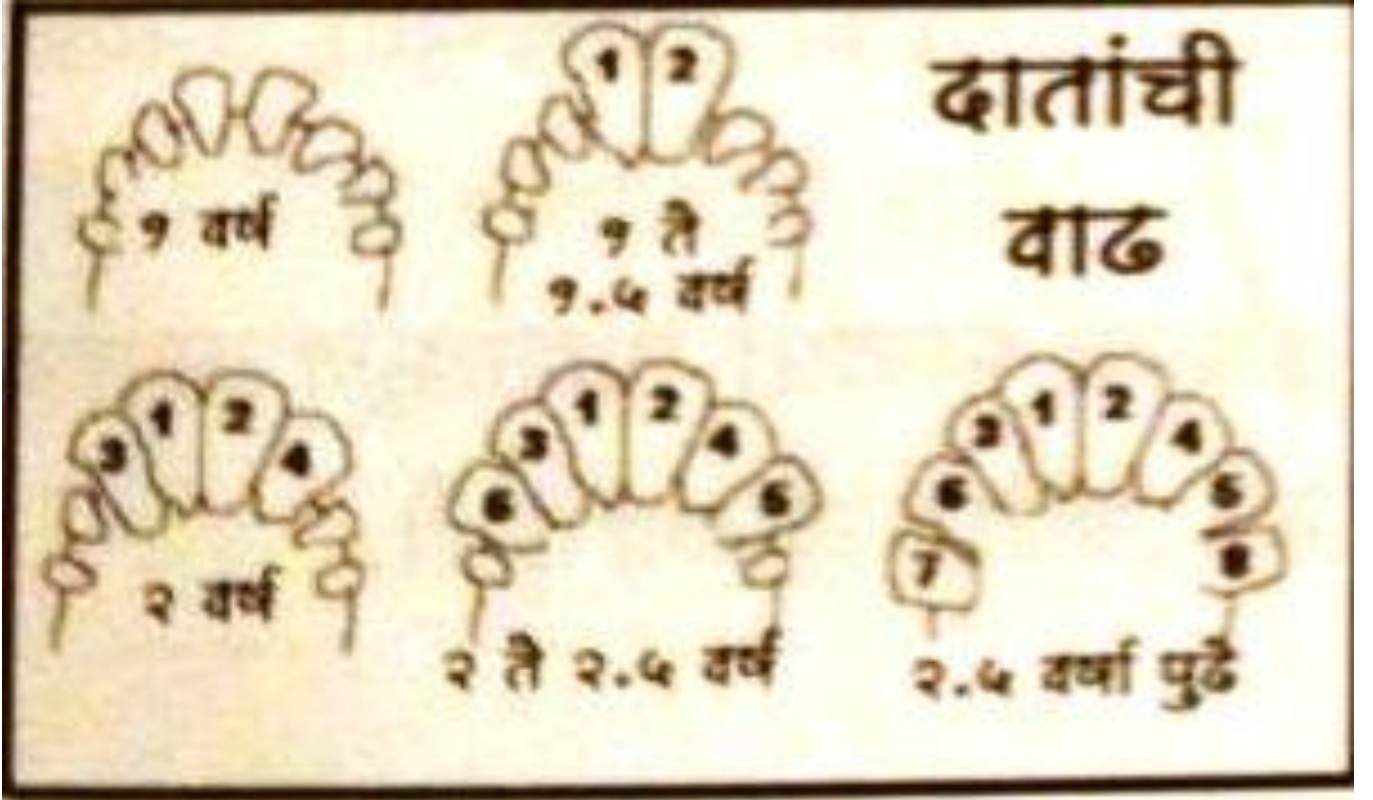 1 2
दातांची
वाढ
१ वर्ष
१ ते
१.५ वर्ष
3 1 2 4
२ वर्ष
6 3 1 2 4 5
२ ते २.५ वर्ष
7 6 3 1 2 4 5 8
२.५ वर्षा पुढे